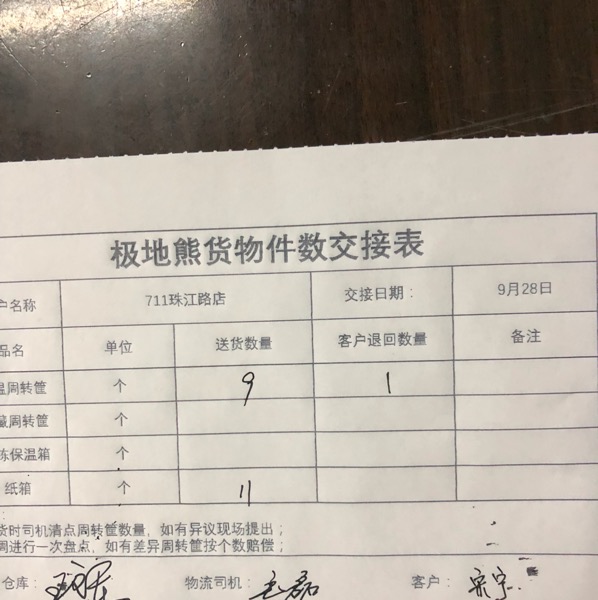 极地熊货物件数交接表
户名称 711珠江路店 交接日期： 9月28日
品名 单位 送货数量 客户退回数量 备注
温周转筐 个 9 1
藏周转筐 个
冻保温箱 个
纸箱 个 11
货时司机清点周转筐数量，如有异议现场提出；
周进行一次盘点，如有差异周转筐按个数赔偿；
仓库： 物流司机： 客户：